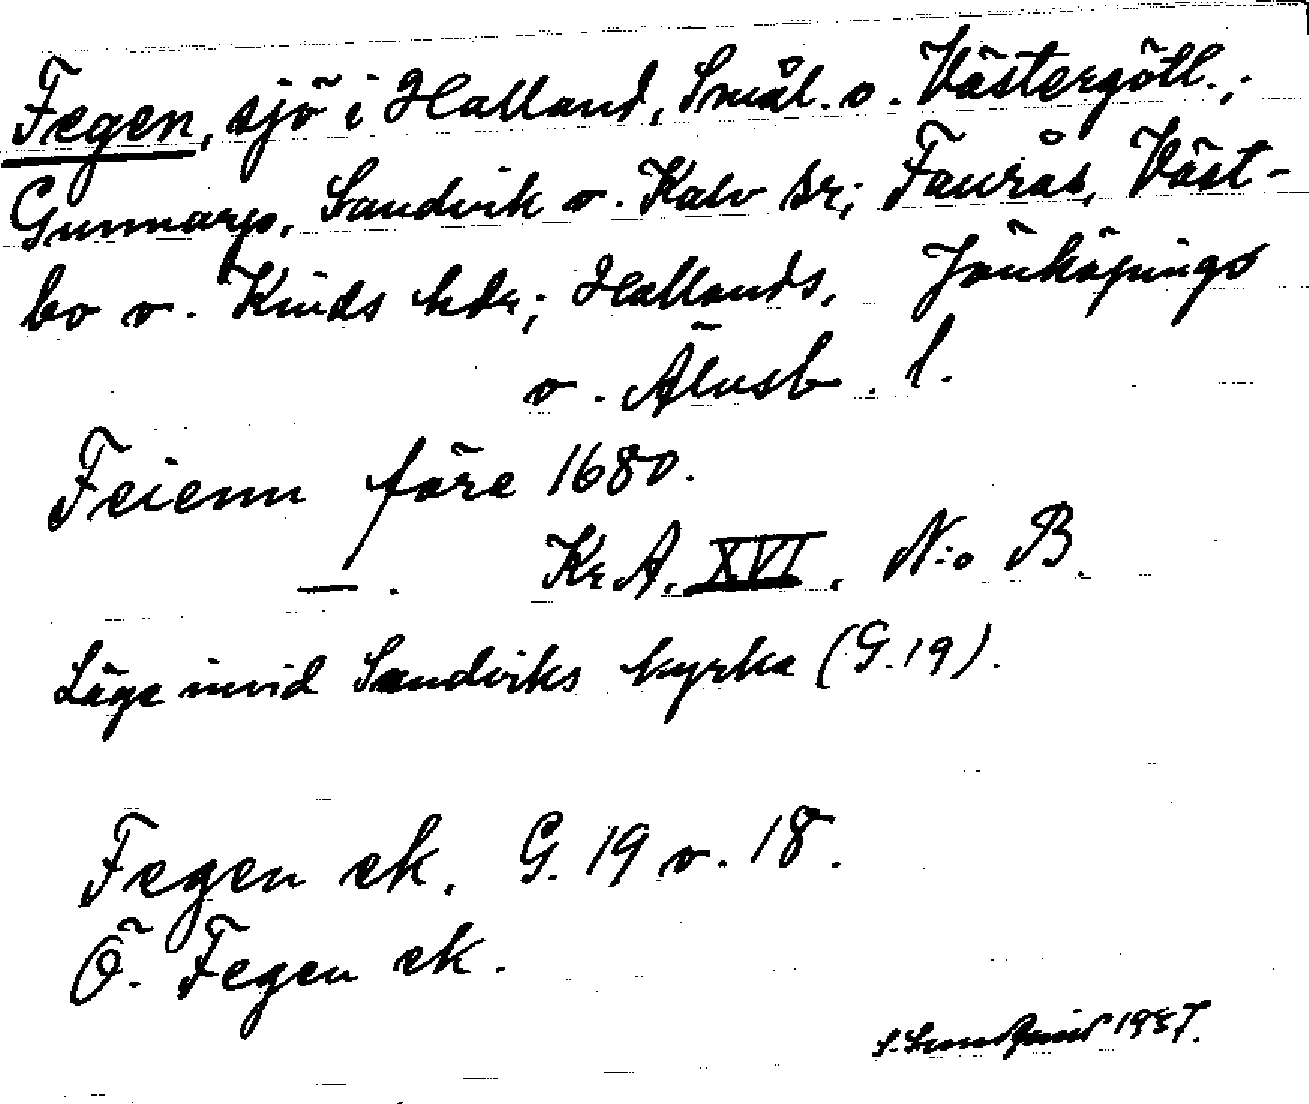 Fegen, sjö i Halland, Smål. o. Västergötl.;
Gunnarp, Sandvik o. Kalv sr; Faurås, Väst-
bo o. Kinds hdr; Hallands, Jönköpings
o. Älvsb. l.
Feienn före 1680.
— . Kr. A. XVI. N:o B.
Läge invid Sandviks kyrka (G. 19).
Fegen ek. G. 19 o. 18.
Ö. Fegen ek.
S. Lundquist 1937.